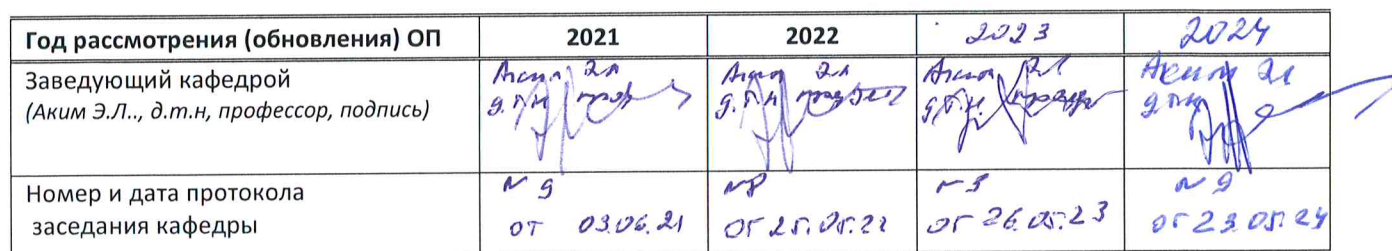 Год рассмотрения (обновления) ОП 2021 2022 2023 2024
Заведующий кафедрой
(Аким Э.Л.., д.т.н, профессор, подпись)
Аким Эл Аким Эл Аким Эл Аким Эл
д.т.н проф д.т.н д.т.н. д.т.н
Номер и дата протокола
заседания кафедры
N 9 N8 N 9
от 03.06.21 от 25.05.22 от 26.05.23 от 23.05.24